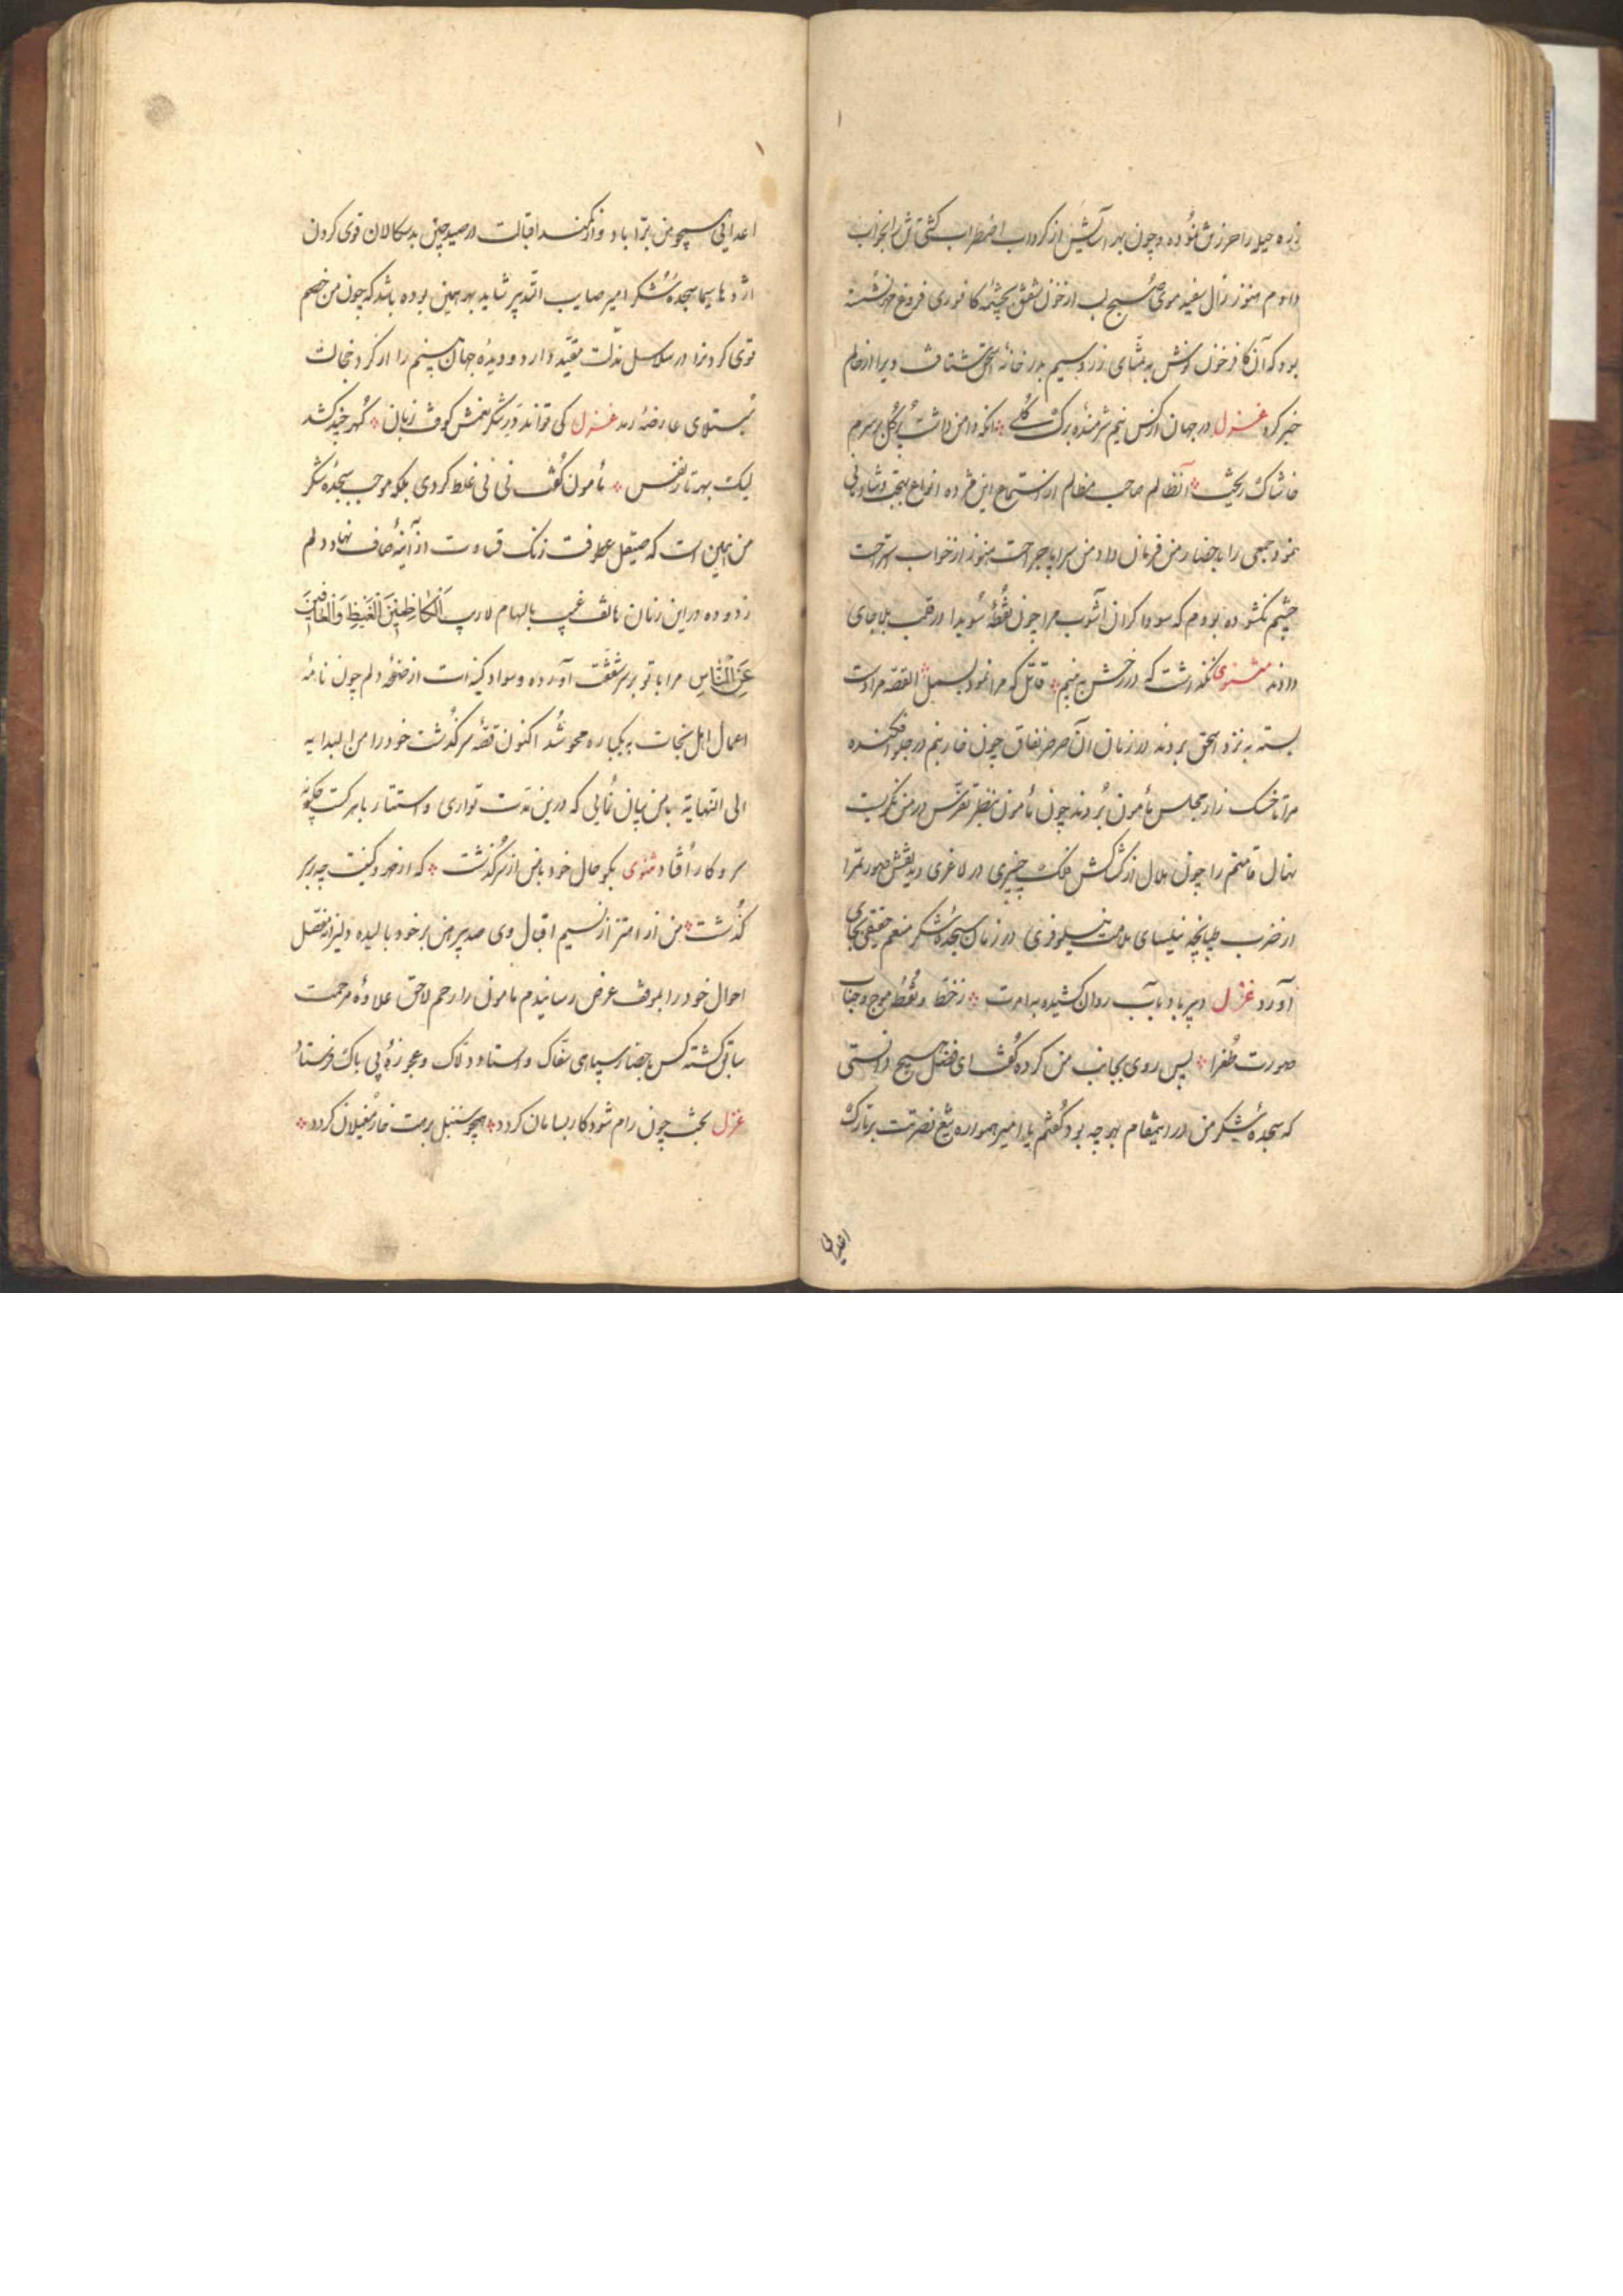 زره حیله را حرز من نموده و چون بهر آسایش از کرداب اضطراب کشتی تن را بخواب
دادم هنوز زال سفید موی صبح لب از خون شفق بچشمه کافوری فروغ خود نشسته
بود که آن کافر خون نوش به تمنای زر و سیم بدر خانه اسحق شتافت ویرا از حالم
خبر کرد غزل در جهان از کس نیم شرمنده برک کلے انکه دامن داشت پر کل بر سرم
خاشاک ریخت آنظالم صاحب مظالم از استماع این مژده انواع بهجت و شادمانی
نمود جمعی را باحضار من فرمان داد من سراپا جراحت هنوز از خواب استراحت
چشم نکشوده بودم که سوداکران آشوب مرا چون نقطه سویدا در قلب بلا جای
دادند مثنوی نکذاشت که در خسش به بینم قاتل که مرا نمود بسمل القصه مرا دست
بسته به نزد اسحق بردند در زمان آن صرصر نفاق چون خار بنم در جلو افکنده
مرا تا خسک زار مجلس مأمون بردند چون مأمون بنظر تفرس در من نکریست
نهال قامتم را چون هلال از کشاکش فلک چنبری در لاغری دید نقش صورتمرا
از ضرب طپانچه نیلسای ملامت نیلوفری در زمان سجدهٔ شکر منعم حقیقی بجای
آورد غزل دبیر باد بآب روان کشیده برات ز خط و نقط موج و حباب
صورت طغرا پس روی بجانب من کرده کفت ای فضل هیچ دانستی
که سجدهٔ شکر من در اینمقام بهر چه بود کفتم یا امیر همواره تیغ نصرتت بر تارک
اعدائی
اعدائی همچو من بُرّا باد و از کمند اقبالت در صید چنین بدسکالان قوی کردن
اژدها سیما سجده شکر امیر صایب التدبیر شاید بهر همین بوده باشد که چون من خصم
قوی کردنرا در سلاسل مذلت مقیّد دارد و دیدهٔ جهان بینم را از کرد خجالت
مبتلای عارضهٔ رمد غزل کی تواند در شکر نعمش کوفت زبان کهر خیز کشد
لیک بهر تار نفس مأمون کفت نی نی غلط کردی بلکه موجب سجدهٔ شکر
من همین است که صیقل عطوفت زنک قساوت از آینهٔ صاف نهاد دلم
زدوده در این زمان هاتف غیب بالهام لاریب اَلْکاظِمِینَ الْغَیْظَ وَالْعافِینَ
عَنِ النَّاسِ مرا با تو بر سر شفقت آورده و سواد کینه ات از صفحهٔ دلم چون نامهٔ
اعمال اهل نجات به یکباره محو شد اکنون قصهٔ سرکذشت خود را من البدایه
الی النهایة با من بیان نمایی که درین مدت تواری و استتار با هر کست چکونه
سر و کار افتاد مثنوی بکو حال خود با من از سرکذشت که از خود کیت چه بر سر
کذشت من از اهتزاز نسیم اقبال وی صد پیرهن بر خود بالیده دلیرانه مفصل
احوال خود را بموقف عرض رسانیدم مامون را رحم لاحق علاوهٔ مرحمت
سابق کشته کس باحضار سپاهی سفاک و استاد دلاک و عجوزهٔ بی باک فرستاد
غزل بخت چون رام شود کار بسامان کردد همچو سنبل برمت خار مغیلان کردد